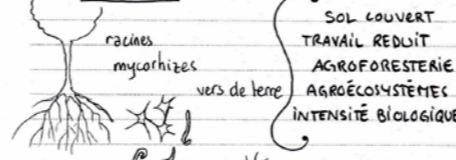 racines
mycorhizes
vers de terre
SOL COUVERT
TRAVAIL REDUIT
AGROFORESTERIE
AGROÉCOSYSTÈMES
INTENSITÉ BIOLOGIQUE